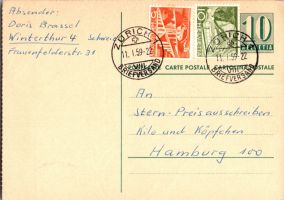 Absender:
Doris Brassel
Winterthur 4 Schweiz
Frauenfelderstr. 31
ZÜRICH 1
11.1.59-22
BRIEFVERSAND
10
HELVETIA
CARTE POSTALE
An
Stern-Preisausschreiben
Kilo und Köpfchen
Hamburg 100